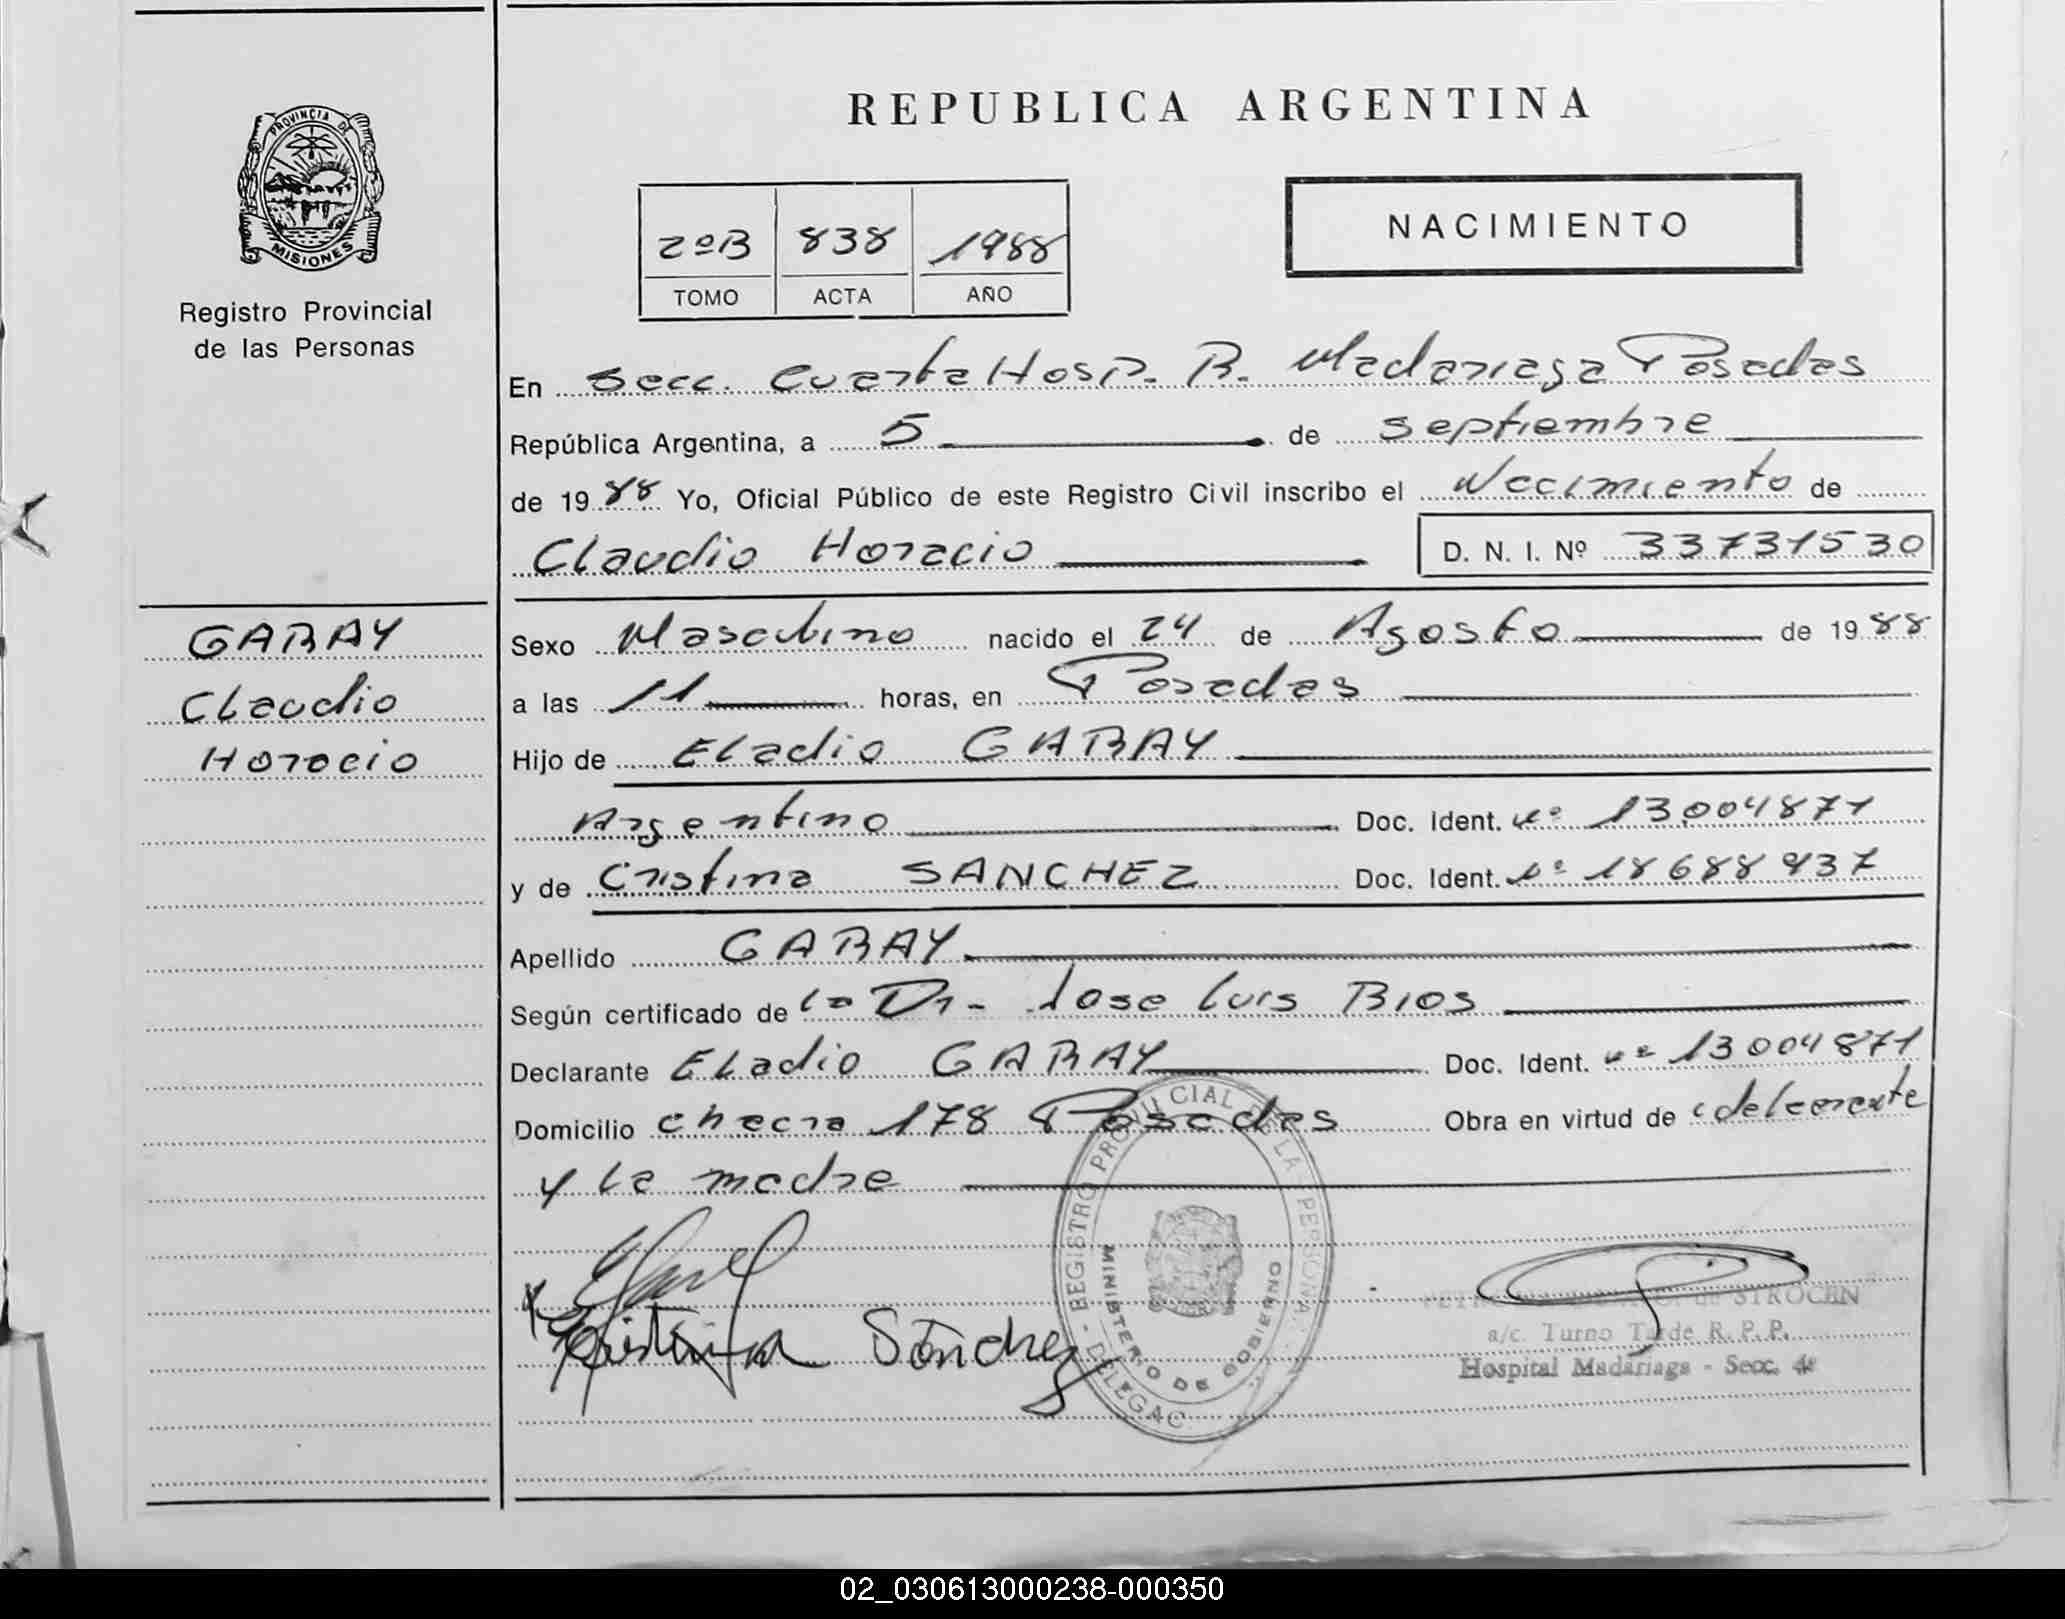 PROVINCIA DE
MISIONES
Registro Provincial
de las Personas
GARAY
Claudio
Horacio
REPUBLICA ARGENTINA
2ºB 838 1988
TOMO ACTA AÑO
NACIMIENTO
En Secc. Cuarta Hosp. R. Madariaga Posadas
República Argentina, a 5 de septiembre
de 1988 Yo, Oficial Público de este Registro Civil inscribo el Nacimiento de
Claudio Horacio D. N. I. Nº 33731530
Sexo Masculino nacido el 24 de Agosto de 1988
a las 11 horas, en Posadas
Hijo de Eladio GARAY
Argentino Doc. Ident. nº 13.004871
y de Cristina SANCHEZ Doc. Ident. nº 18688937
Apellido GARAY
Según certificado de la Dr- Jose Luis Bios
Declarante Eladio GARAY Doc. Ident. nº 13004871
Domicilio chacra 178 Posadas Obra en virtud de
y la madre
Cristina Sánchez
REGISTRO PROVINCIAL DE LA PERSONA
MINISTERIO DE GOBIERNO
DELEGAC
de STROCEN
a/c. Turno Tarde R. P. P.
Hospital Madariaga - Secc. 4ª
02_030613000238-000350